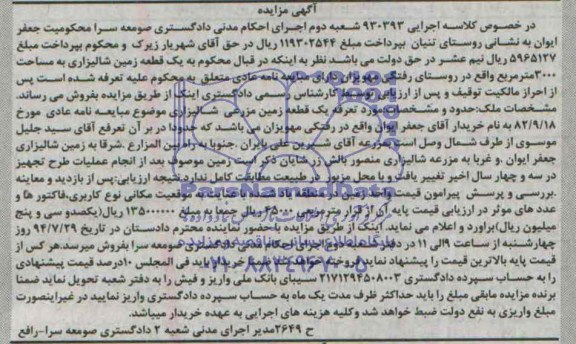 آگهی مزایده
در خصوص کلاسه اجرایی ۹۳۰۳۹۳ شعبه دوم اجرای احکام مدنی دادگستری صومعه سرا محکومیت جعفر
ایوان به نشانی روستای تنیان بپرداخت مبلغ ۱۱۹۳۰۲۵۴۴ ریال در حق آقای شهریار زیرک و محکوم بپرداخت مبلغ
۵۹۶۵۱۲۷ ریال نیم عشر در حق دولت می باشد نظر به اینکه در قبال محکوم به یک قطعه زمین شالیزاری به مساحت
۳۰۰۰مترمربع واقع در روستای رفتکی مهویزان دارای مبایعه نامه عادی متعلق به محکوم علیه تعرفه شده است پس
از احراز مالکیت توقیف و پس از ارزیابی توسط کارشناس رسمی دادگستری اینک از طریق مزایده بفروش می رساند.
مشخصات ملک:حدود و مشخصات مورد تعرفه یک قطعه زمین مزروعی شالیزاری موضوع مبایعه نامه عادی مورخ
۸۲/۹/۱۸ به نام خریدار آقای جعفر ایوان واقع در رفتکی مهویزان می باشد که حدودا در بر آن تعرفع آقای سید جلیل
موسوی از طرف شمال وصل است بمزرعه آقای شیرین علی بایران .جنوبا به راه بین المزارع .شرقا به زمین شالیزاری
جعفر ایوان .و غربا به مزرعه شالیزاری منصور بالش زر شایان ذکر است زمین موصوف بعد از انجام عملیات طرح تجهیز
در سه و چهار سال اخیر تغییر یافته و با محل مزبور در طبیعت مطابقت کامل ندارد.نتیجه ارزیابی:پس از بازدید و معاینه
.بررسی و پرسش پیرامون قیمت واحد زمین در منطقه یاد شده با عنایت به موقعیت مکانی نوع کاربری،فاکتور ها و
عدد های موثر در ارزیابی قیمت پایه آن از قرار متر مربعی ۴۵۰۰۰ ریال جمعا به مبلغ ۱۳۵۰۰۰۰۰۰ ریال(یکصدو سی و پنج
میلیون ریال)براورد و اعلام می نماید. اینک از طریق مزایده با حضور نماینده محترم دادستان در تاریخ ۹۴/۷/۲۹ روز
چهارشنبه از ساعت ۹الی ۱۱ در دفتر شعبه دوم اجرای احکام مدنی دادگستری صومعه سرا بفروش میرسد.هر کس از
قیمت پایه بالاترین قیمت را پیشنهاد نماید فروخته خواهد شد ضمنا خریدار باید فی المجلس ۱۰درصد قیمت پیشنهادی
را به حساب سپرده دادگستری ۲۱۷۱۲۹۴۵۰۸۰۰۳ سیبای بانک ملی واریز و فیش را به دفتر شعبه تحویل نماید ضمنا
برنده مزایده مابقی مبلغ را باید حداکثر ظرف مدت یک ماه به حساب سپرده دادگستری واریز نمایید در غیراینصورت
مبلغ واریزی به نفع دولت ضبط خواهد شد وکلیه هزینه های اجرایی به عهده خریدار میباشد.
ح ۲۶۴۹مدیر اجرای مدنی شعبه ۲ دادگستری صومعه سرا-رافع